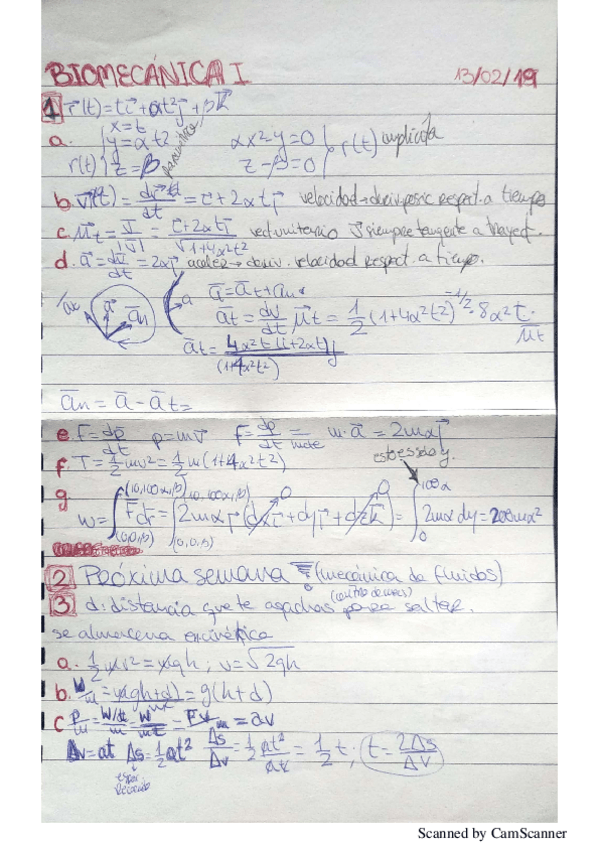 BIOMECÁNICA I 13/02/19
1 r(t)=tî+αt²j+βk
a. {x=t
y=αt2 αx²-y=0
r(t) z=β z-β=0 } r(t) implícita
b. v(t) = dr/dt = i+2αtj velocidad→deriv. posic respect. a tiempo
c. μt = v/|v| = i+2αtj/√1+4α²t² vect. unitario v siempre tangente a trayect.
d. a = dv/dt = 2αj aceler→deriv. velocidad respect. a tiempo.
a = at+an
at = dv/dt μt = 1/2 (1+4α²t²)^-1/2 · 8α²t· μt
at = 4α²t(i+2αt)j/(1+4α²t²)
an = a - at =
e. F=dp/dt p=mv F=dp/dt = m·a = 2mαj
f. T=1/2 mv² = 1/2 m(1+4α²t²)
es eso de y.
g. w=∫(0,0,β)(10,100α,β) Fdr = ∫(0,0,β)(10,100α,β) 2mαj (dxi+dyj+dzk) = ∫0 100α 2mα dy = 200mα²
2 Próxima semana (mecánica de fluidos)
(centro de masas)
3 d: distancia que te agachas para saltar.
se almacena en cinética
a. 1/2 mv² = mgh; v=√2gh
b. W/m = m(gh+d)/m = g(h+d)
c P/m = W/dt/m = W/mt = Fv/m = av
Δv=at Δs=1/2at² Δs/Δv = 1/2 at²/at = 1/2 t; t = 2Δs/ΔV
espac.
Scanned by CamScanner